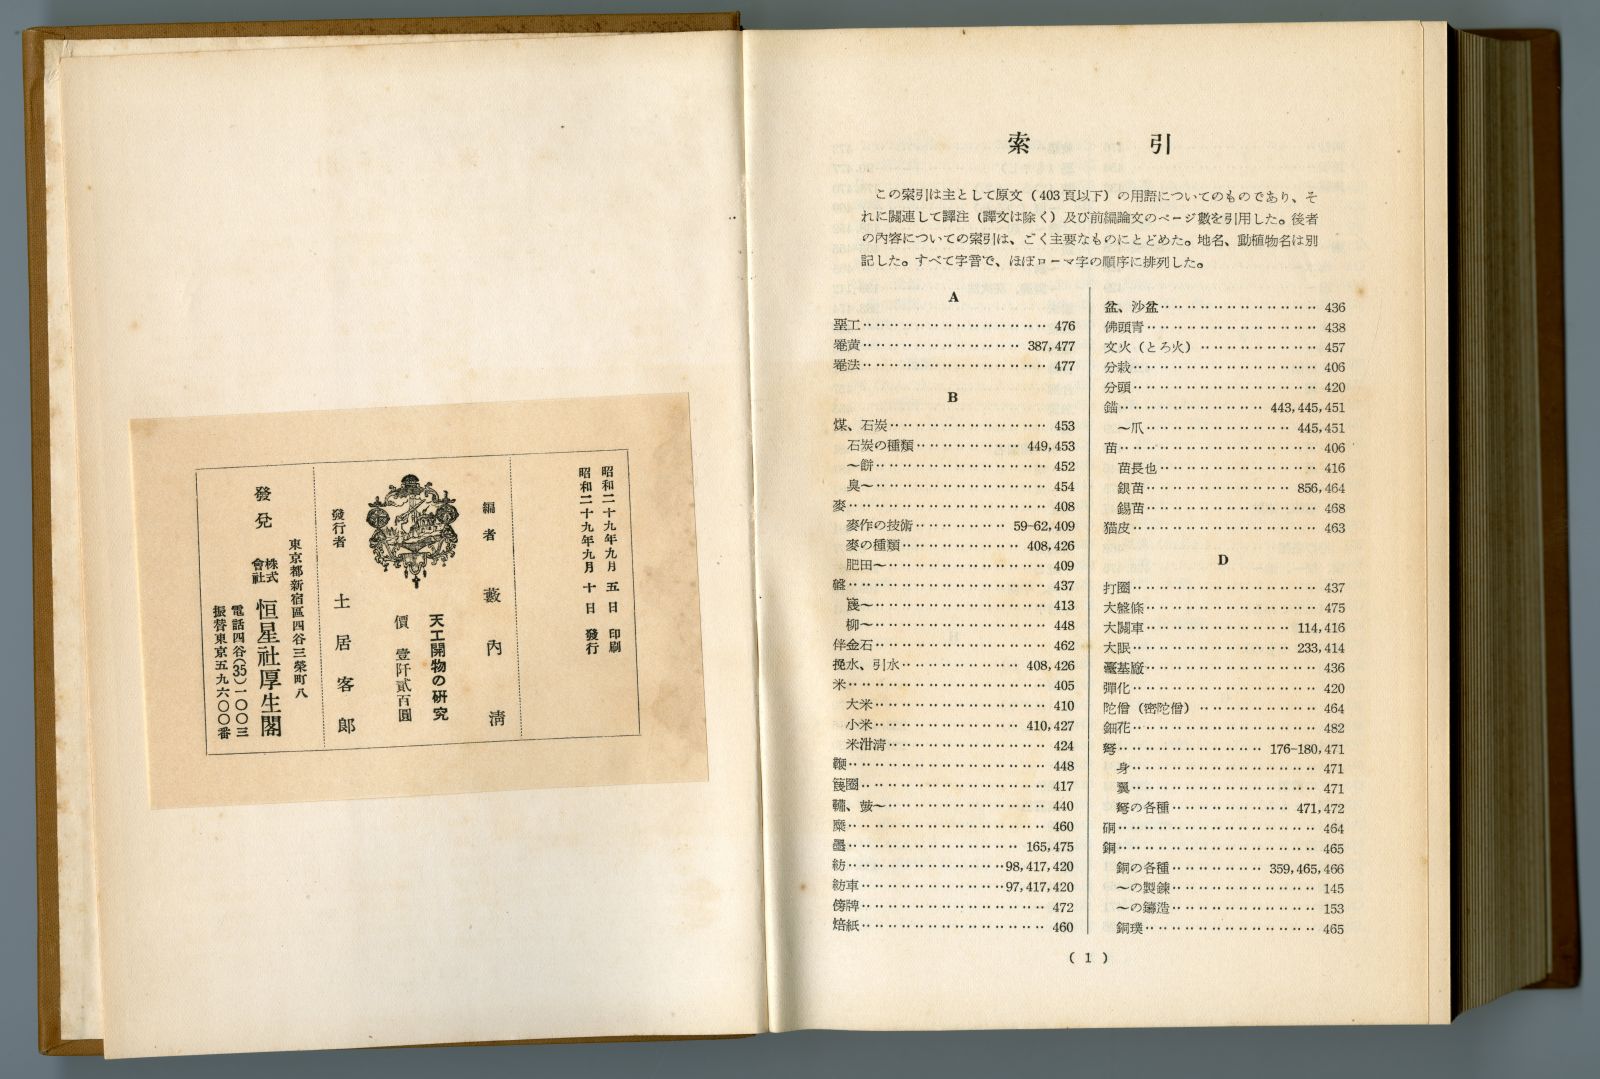 昭和二十九年九月 五 日 印刷
昭和二十九年九月 十 日 發行
編者 藪內清
天工開物の研究
價 壹阡貳百圓
發行者 土居客郎
東京都新宿區四谷三榮町八
發兌 株式會社 恒星社厚生閣
電話四谷(35)一〇〇三
振替東京五九六〇〇番
索 引
この索引は主として原文(403頁以下)の用語についてのものであり、そ
れに關連して譯注(譯文は除く)及び前編論文のページ數を引用した。後者
の內容についての索引は、ごく主要なものにとどめた。地名、動植物名は別
記した。すべて字音で、ほぼローマ字の順序に排列した。
A
堊工 476
罨黄 387,477
罨法 477
B
煤、石炭 453
石炭の種類 449,453
〜餠 452
臭〜 454
麥 408
麥作の技術 59-62,409
麥の種類 408,426
肥田〜 409
437
〜 413
柳〜 448
伴金石 462
挽水、引水 408,426
米 405
大米 410
小米 410,427
米泔淸 424
鞭 448
篾圈 417
〜 440
糜 460
墨 165,475
紡 98,417,420
紡車 97,417,420
傍牌 472
焙紙 460
(1)
盆、沙盆 436
佛頭青 438
文火(とろ火) 457
分栽 406
分頭 420
錨 443,445,451
〜爪 445,451
苗 406
苗長也 416
銀苗 856,464
錫苗 468
猫皮 463
D
打圈 437
大 條 475
大關車 114,416
大眠 233,414
基廠 436
彈化 420
陀僧(密陀僧) 464
鈿花 482
弩 176-180,471
身 471
翼 471
弩の各種 471,472
硐 464
銅 465
銅の各種 359,465,466
〜の製鍊 145
〜の鑄造 153
銅璞 465